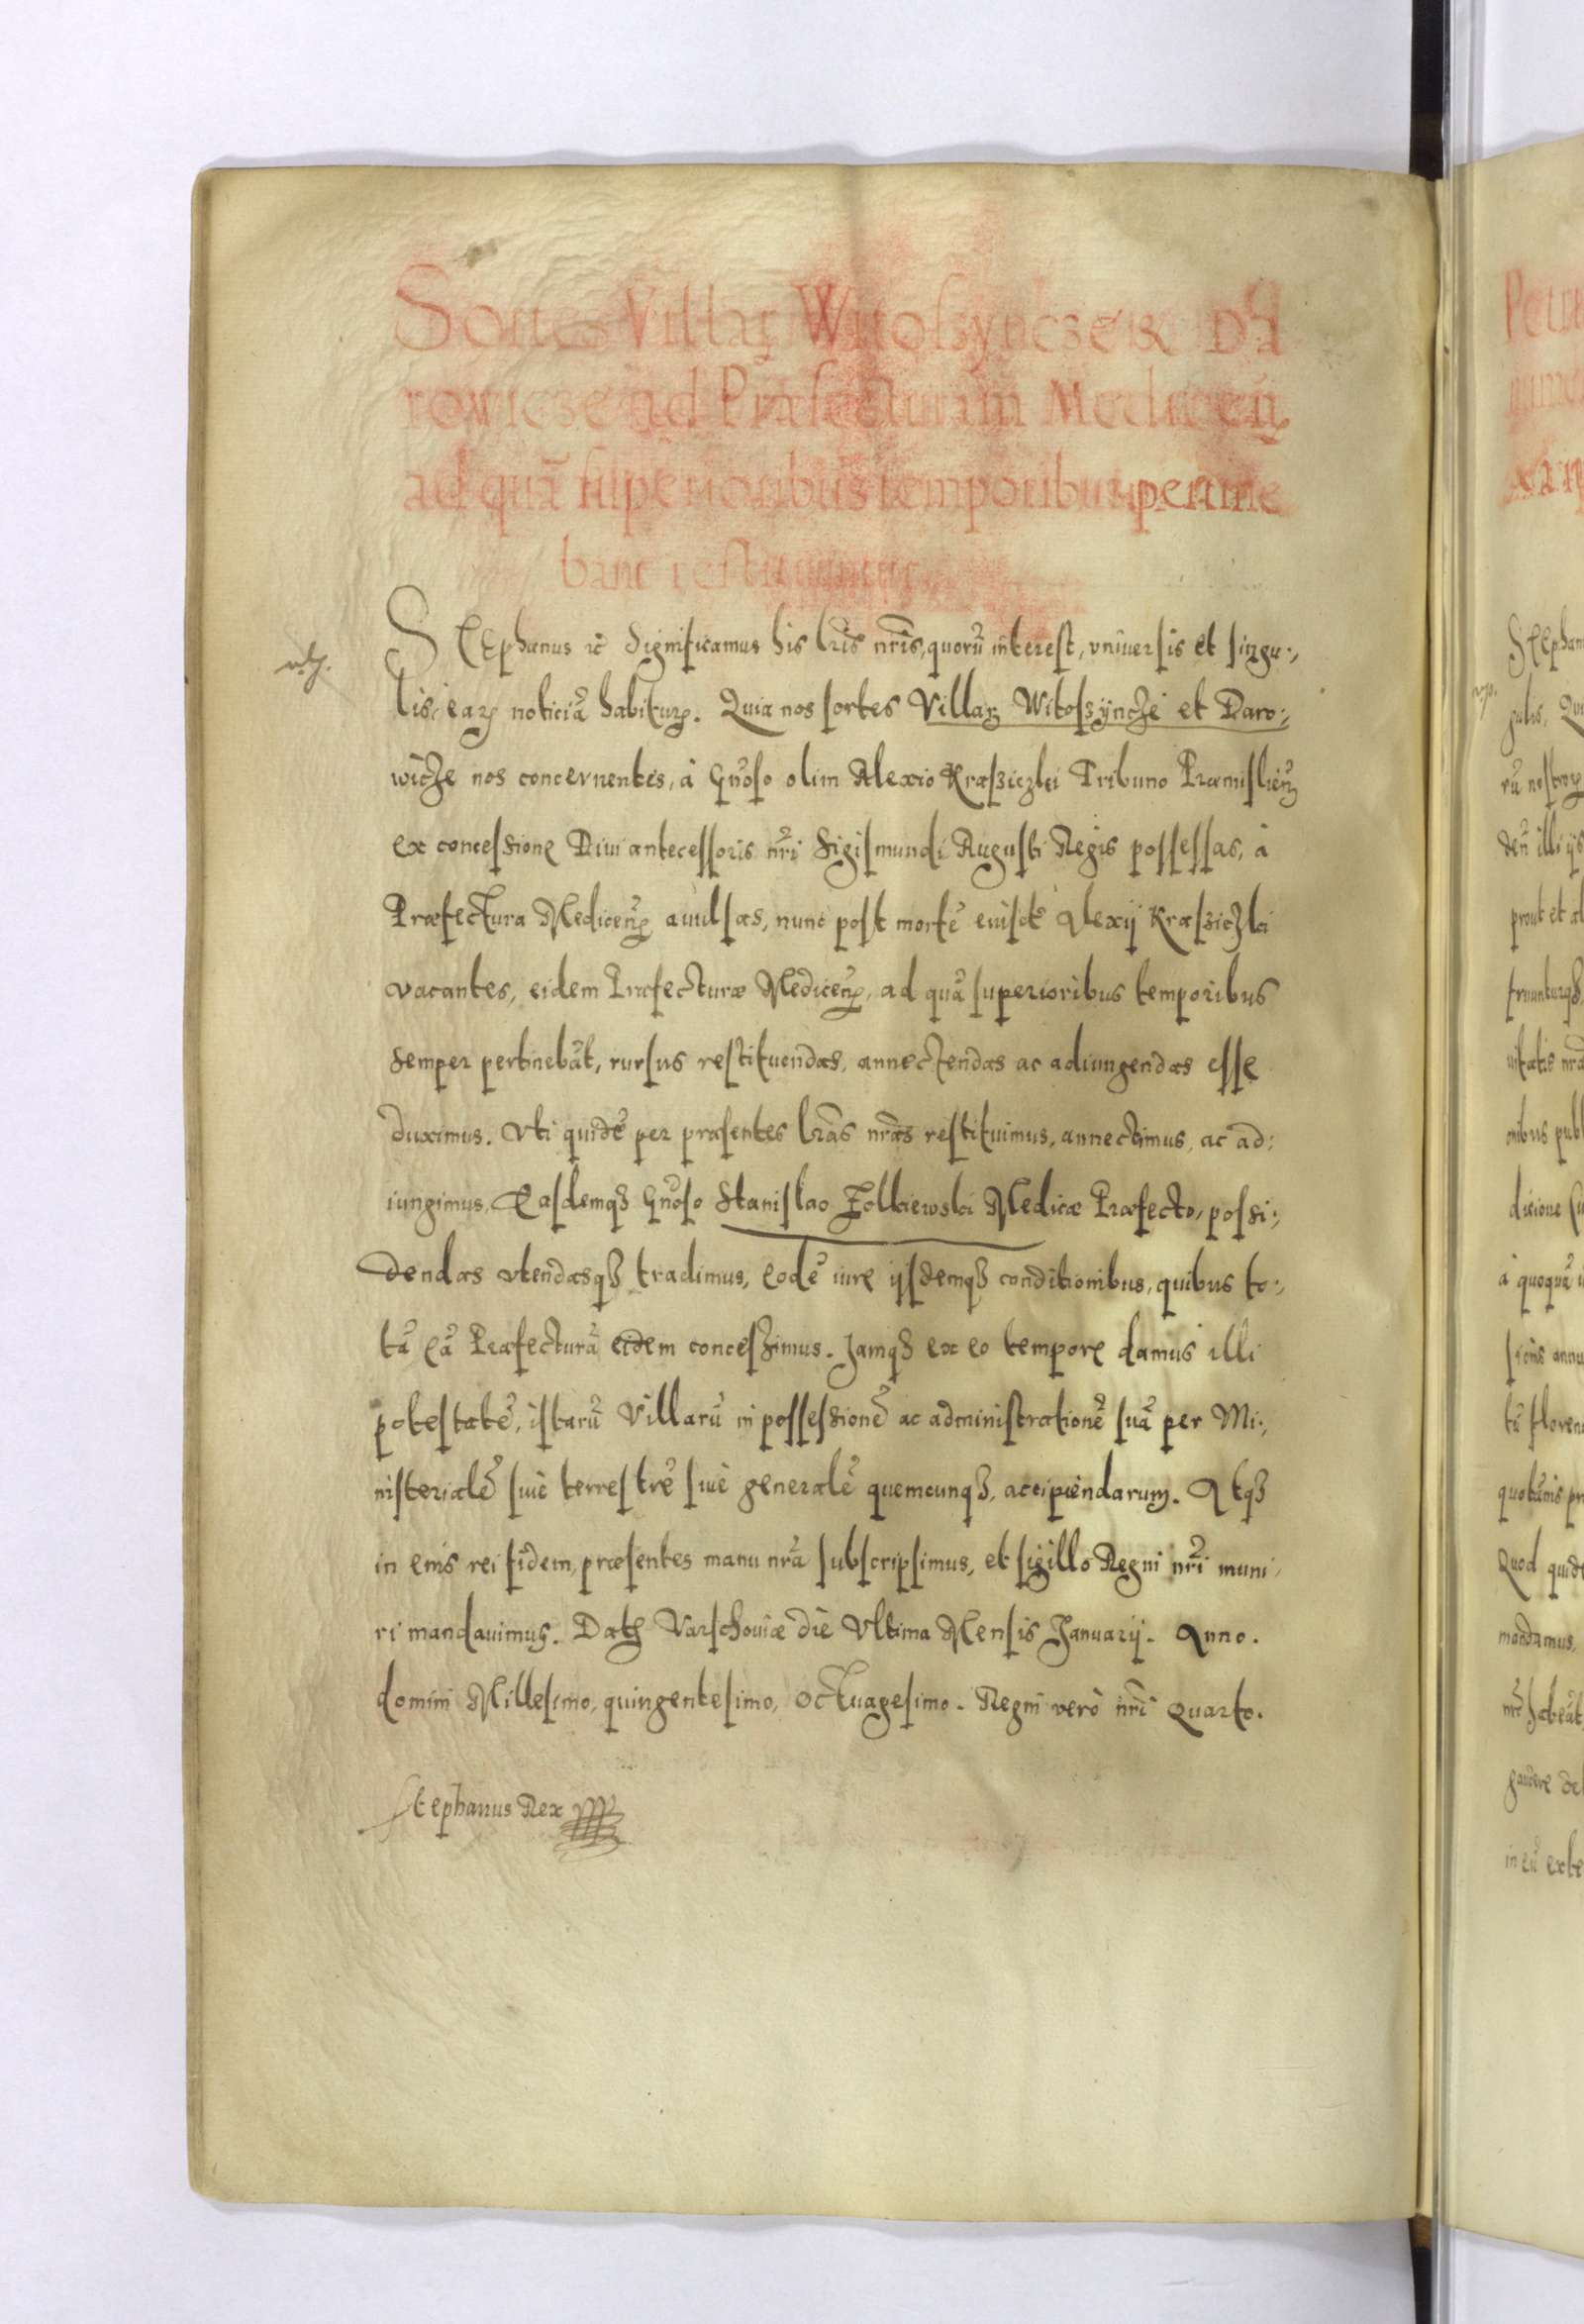 Sortes Villaꝝ Witoſzyncze & Da
rowicze ad Præfecturam Medicen̄
ad quā ſuperioribus temporibus pertine
bant reſtituuntur
Stephanus ꝛc̄ Significamus his lr̄is nr̄is, quorū intereſt, vniuerſis et ſingu:,
lis, eaꝝ noticiā habituꝝ. Quia nos ſortes Villaꝝ Witoſzyncze et Daro:,
wicze nos concernentes, à Gn̄oſo olim Alexio Kraſziczki Tribuno Præmiſlien̄
ex conceſsione Diui anteceſſoris nr̄i Sigiſmundi Auguſti Regis poſſeſſas, à
Præfectura Medicen̄ auulſas, nunc poſt mortē eiuſdē Alexij Kraſziczki
vacantes, eidem Præfecturæ Medicen̄, ad quā ſuperioribus temporibus
Semper pertinebāt, rurſus reſtituendas, annectendas ac adiungendas eſſe
duximus. Vti quidē per præſentes lr̄as nr̄as reſtituimus, annectimus, ac ad:
iungimus, Eaſdemqꝫ Gn̄oſo Staniſlao Zolkiewski Medicæ Præfecto, poſsi:,
dendas vtendasqꝫ tradimus, eodē iure ijſdemqꝫ conditionibus, quibus to:,
tā eā Præfecturā eidem conceſsimus. Jamqꝫ ex eo tempore damus illi
poteſtatē, iſtarū Villarū in poſſeſsionē ac adminiſtrationē ſuā per Mi:,
niſterialē ſiuè terreſtrē ſiuè generalē quemcunqꝫ, accipiendarum. Atqꝫ
in eius rei fidem, præſentes manu nr̄a ſubſcripſimus, et ſigillo Regni nr̄i muni,
ri mandauimus. Datꝫ Varſchouiæ die Vltima Menſis Januarij. Anno.
domini Milleſimo, quingenteſimo, Octuageſimo. Regni verò nr̄i Quarto.
Stephanus Rex